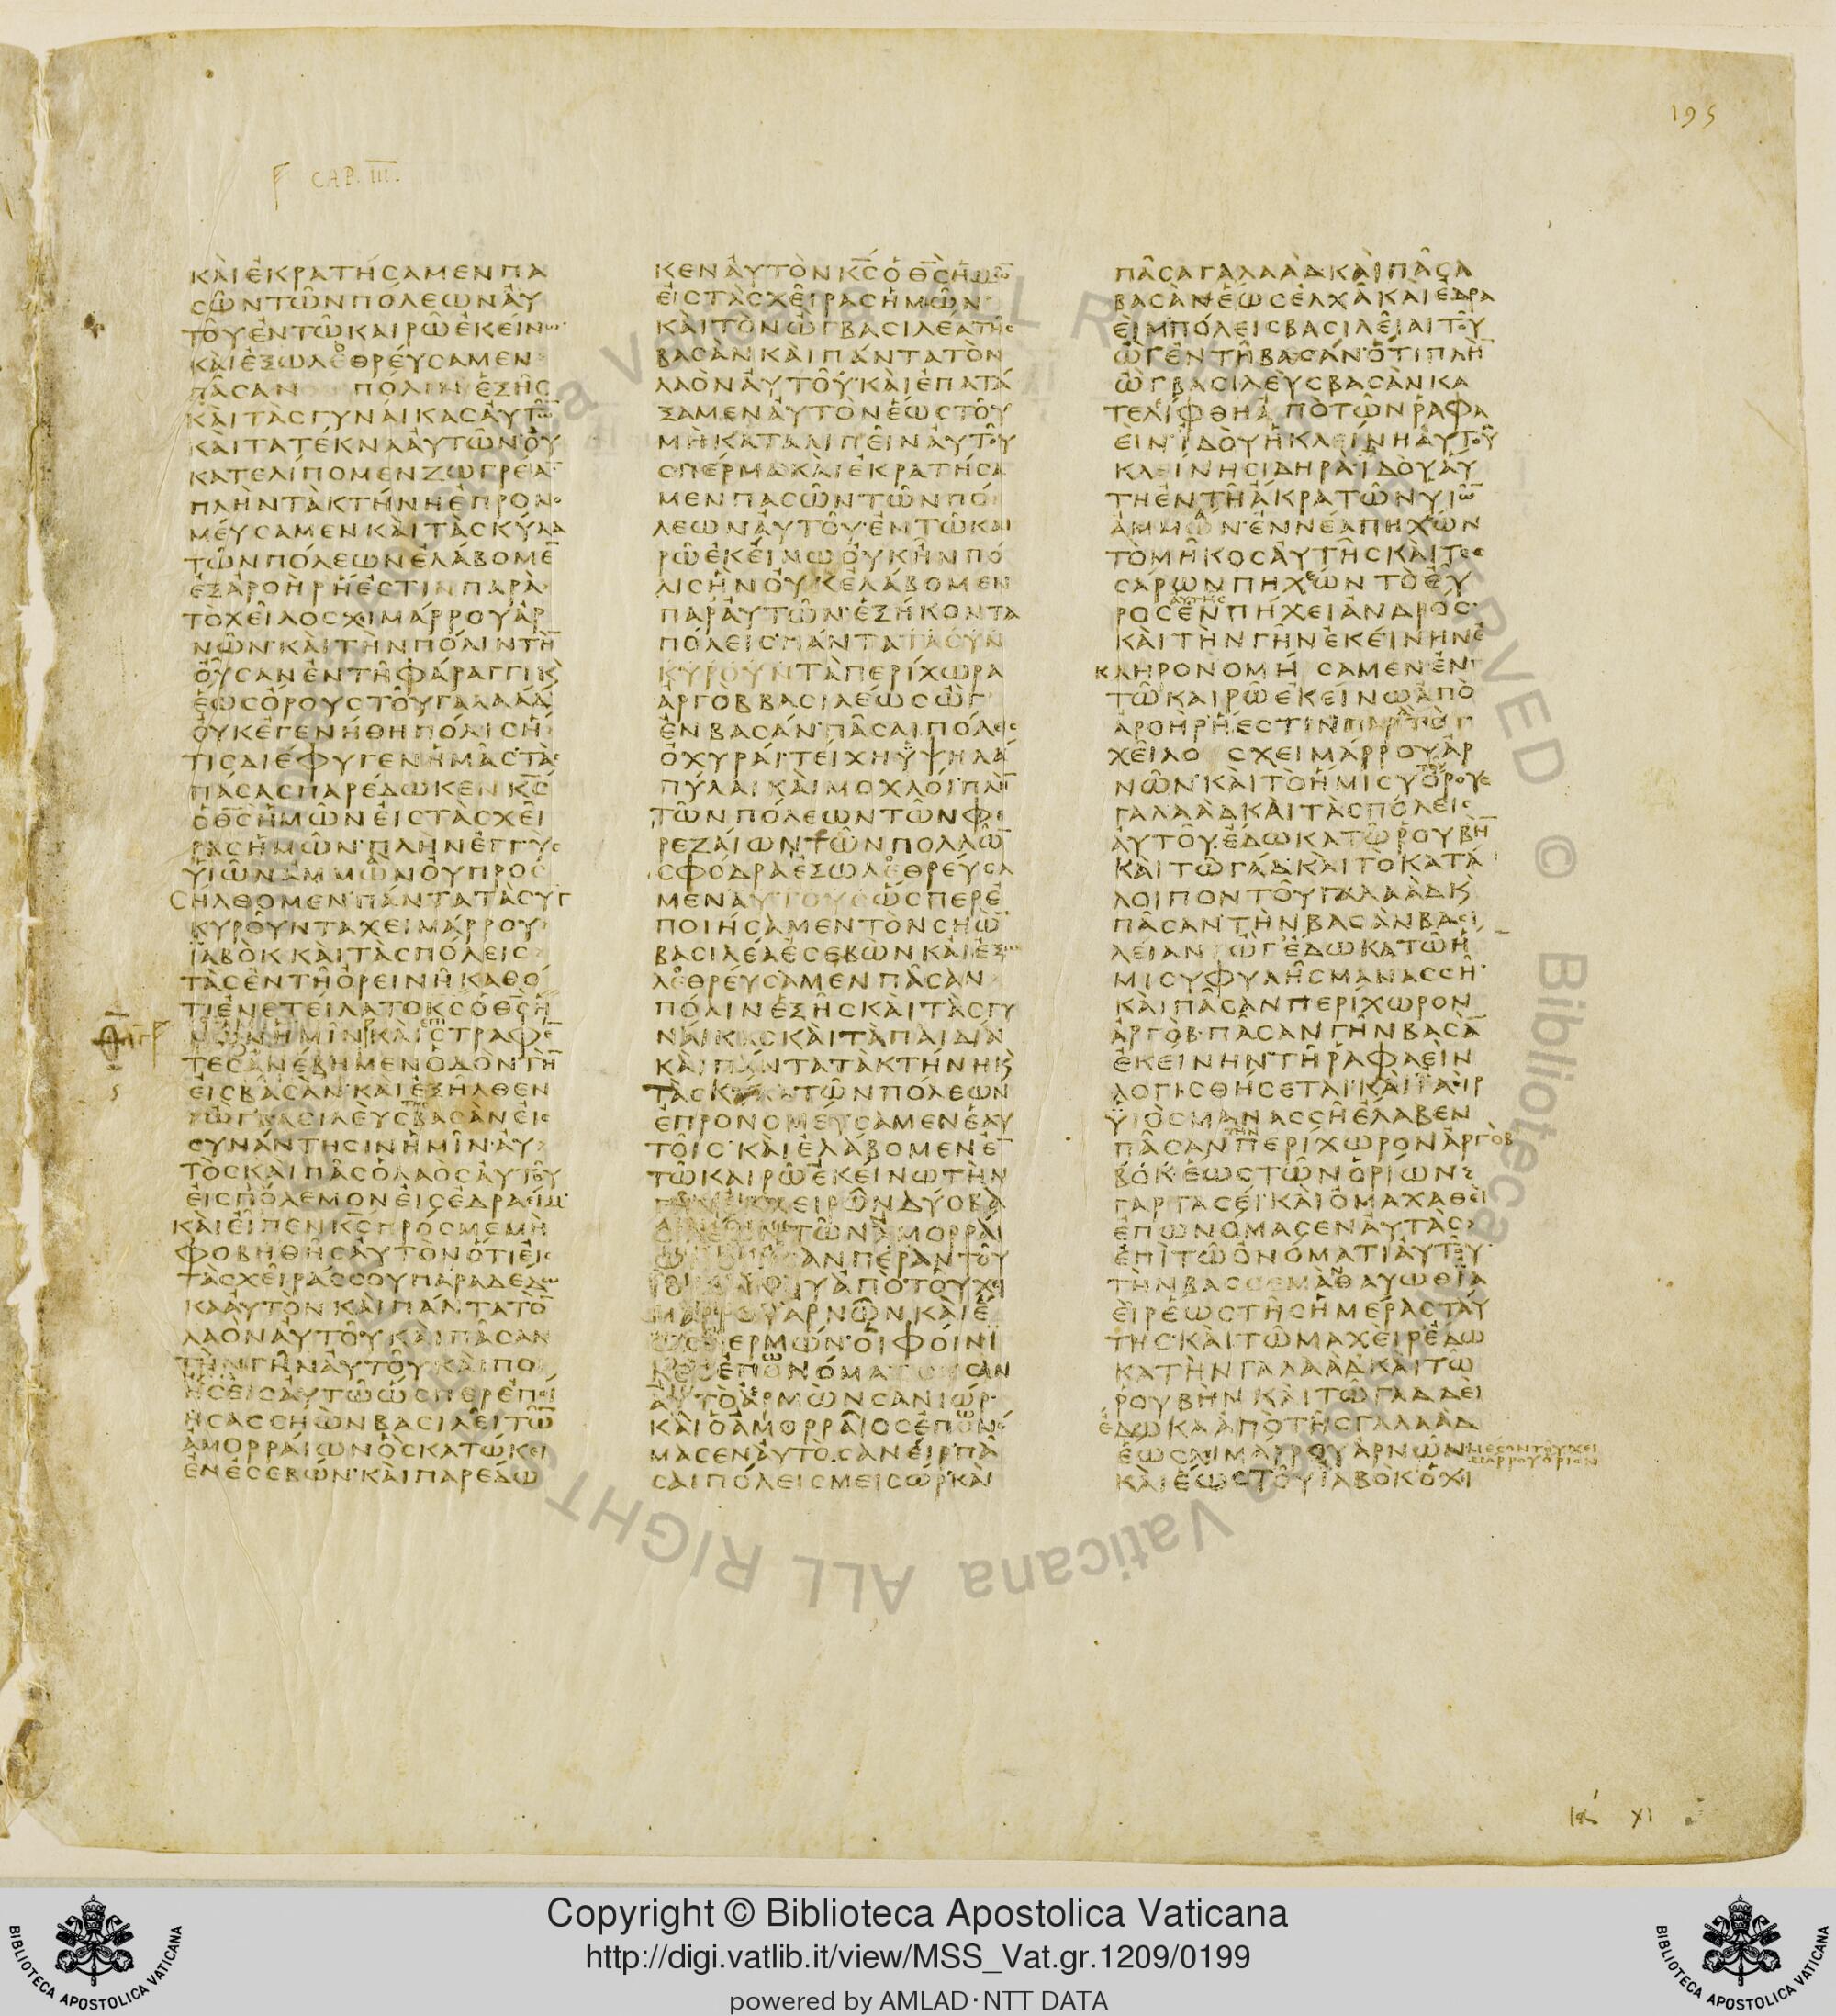 195
CAP. III.
ΚΑΙΕΚΡΑΤΗСΑΜΕΝΠΑ
СΩΝΤΩΝΠΟΛΕΩΝΑΥ
ΤΟΥΕΝΤΩΚΑΙΡΩΕΚΕΙΝΩ
ΚΑΙΕΞΩΛΕΘΡΕΥСΑΜΕΝ
ΠΑСΑΝ ΠΟΛΙΝΕΞΗС
ΚΑΙΤΑСΓΥΝΑΙΚΑСΑΥΤΩ̅
ΚΑΙΤΑΤΕΚΝΑΑΥΤΩΝΟΥ
ΚΑΤΕΛΙΠΟΜΕΝΖΩΓΡΕΙΑ̅
ΠΛΗΝΤΑΚΤΗΝΗΕΠΡΟΝΟ
ΜΕΥСΑΜΕΝΚΑΙΤΑСΚΥΛΑ
ΤΩΝΠΟΛΕΩΝΕΛΑΒΟΜΕ̅
ΕΞΑΡΟΗΡΗΕСΤΙΝΠΑΡΑ
ΤΟΧΕΙΛΟСΧΙΜΑΡΡΟΥΑΡ
ΝΩΝ·ΚΑΙΤΗΝΠΟΛΙΝΤΗ̅
ΟΥСΑΝΕΝΤΗΦΑΡΑΓΓΙΚ
ΕΩСΟΡΟΥСΤΟΥΓΑΛΑΑΔ
ΟΥΚΕΓΕΝΗΘΗΠΟΛΙСΗ
ΤΙСΔΙΕΦΥΓΕΝΗΜΑС·ΤΑС
ΠΑСΑСΠΑΡΕΔΩΚΕΝΚ̅С̅
ΟΘ̅С̅ΗΜΩΝΕΙСΤΑСΧΕΙ
ΡΑСΗΜΩΝ·ΠΛΗΝΕΓΓΥС
ΥΙΩΝΑΜΜΩΝΟΥΠΡΟС
ΗΛΘΟΜΕΝΠΑΝΤΑΤΑСΥΓ
ΚΥΡΟΥΝΤΑΧΕΙΜΑΡΡΟΥ
ΙΑΒΟΚΚΑΙΤΑСΠΟΛΕΙС
ΤΑСΕΝΤΗΟΡΕΙΝΗΚΑΘΟ
ΤΙΕΝΕΤΕΙΛΑΤΟΚ̅С̅ΟΘ̅С̅Η
ΜΩΝΗΜΙΝΚΑΙСΤΡΑΦΕ̅
ΤΕСΑΝΕΒΗΜΕΝΟΔΟΝΤΗ̅
ΕΙСΒΑСΑΝ·ΚΑΙΕΞΗΛΘΕΝ
ΩΓΒΑСΙΛΕΥСΒΑСΑΝΕΙС
СΥΝΑΝΤΗСΙΝΗΜΙΝ·ΑΥ
ΤΟСΚΑΙΠΑСΟΛΑΟСΑΥΤΟΥ
ΕΙСΠΟΛΕΜΟΝΕΙСΕΔΡΑΕΙΜ·
ΚΑΙΕΙΠΕΝΚ̅С̅ΠΡΟСΜΕΜΗ
ΦΟΒΗΘΗСΑΥΤΟΝΟΤΙΕΙС
ΤΑСΧΕΙΡΑССΟΥΠΑΡΑΔΕΔΩ
ΚΑΑΥΤΟΝΚΑΙΠΑΝΤΑΤΟ̅
ΛΑΟΝΑΥΤΟΥΚΑΙΠΑСΑΝ
ΤΗΝΓΗΝΑΥΤΟΥΚΑΙΠΟΙ
ΗСΕΙСΑΥΤΩΩСΠΕΡΕΠΟΙ
ΗСΑССΗΩΝΒΑСΙΛΕΙΤΩ̅
ΑΜΟΡΡΑΙΩΝΟСΚΑΤΩΚΕΙ
ΕΝΕСΕΒΩΝ·ΚΑΙΠΑΡΕΔΩ
ΚΕΝΑΥΤΟΝΚ̅С̅ΟΘ̅С̅ΗΜΩ̅
ΕΙСΤΑСΧΕΙΡΑСΗΜΩΝ
ΚΑΙΤΟΝΩΓΒΑСΙΛΕΑΤΗС
ΒΑСΑΝΚΑΙΠΑΝΤΑΤΟΝ
ΛΑΟΝΑΥΤΟΥ·ΚΑΙΕΠΑΤΑ
ΞΑΜΕΝΑΥΤΟΝΕΩСΤΟΥ
ΜΗΚΑΤΑΛΙΠΕΙΝΑΥΤΟΥ
СΠΕΡΜΑΚΑΙΕΚΡΑΤΗСΑ
ΜΕΝΠΑСΩΝΤΩΝΠΟ
ΛΕΩΝΑΥΤΟΥ·ΕΝΤΩΚΑΙ
ΡΩΕΚΕΙΝΩΟΥΚΗΝΠΟ
ΛΙСΗΝΟΥΚΕΛΑΒΟΜΕΝ
ΠΑΡΑΥΤΩΝ·ΕΞΗΚΟΝΤΑ
ΠΟΛΕΙСΠΑΝΤΑΤΑСΥΝ
ΚΥΡΟΥΝΤΑΠΕΡΙΧΩΡΑ
ΑΡΓΟΒΒΑСΙΛΕΩСΩΓ
ΕΝΒΑСΑΝ·ΠΑСΑΙΠΟΛΕΙС
ΟΧΥΡΑΙ·ΤΕΙΧΗΥΨΗΛΑ
ΠΥΛΑΙΚΑΙΜΟΧΛΟΙ·ΠΛΗ̅
ΤΩΝΠΟΛΕΩΝΤΩΝΦΕ
ΡΕΖΑΙΩΝΤΩΝΠΟΛΛΩ̅
СΦΟΔΡΑΕΞΩΛΕΘΡΕΥСΑ
ΜΕΝΑΥΤΟΥСΩСΠΕΡΕ
ΠΟΙΗСΑΜΕΝΤΟΝСΗΩ̅
ΒΑСΙΛΕΑΕСΕΒΩΝΚΑΙΕΞΩ
ΛΕΘΡΕΥСΑΜΕΝΠΑСΑΝ
ΠΟΛΙΝΕΞΗСΚΑΙΤΑСΓΥ
ΝΑΙΚΑСΚΑΙΤΑΠΑΙΔΙΑ
ΚΑΙΠΑΝΤΑΤΑΚΤΗΝΗΚ
ΤΑСΚΥΛΑΤΩΝΠΟΛΕΩΝ
ΕΠΡΟΝΟΜΕΥСΑΜΕΝΕΑΥ
ΤΟΙС·ΚΑΙΕΛΑΒΟΜΕΝΕ̅
ΤΩΚΑΙΡΩΕΚΕΙΝΩΤΗΝ
ΓΗΝΕΚΧΕΙΡΩΝΔΥΟΒΑ
СΙΛΕΩΝΤΩΝΑΜΟΡΡΑΙ
ΩΝΟΙΗСΑΝΠΕΡΑΝΤΟΥ
ΙΟΡΔΑΝΟΥΑΠΟΤΟΥΧΕΙ
ΜΑΡΡΟΥΑΡΝΩΝΚΑΙΕ
ΩСΑΕΡΜΩΝ·ΟΙΦΟΙΝΙ
ΚΕСΕΠΟΝΟΜΑΖΟΥСΙΝ
ΑΥΤΟΑΕΡΜΩΝСΑΝΙΩΡ
ΚΑΙΟΑΜΟΡΡΑΙΟСΕΠΟΝΟ
ΜΑСΕΝΑΥΤΟСΑΝΕΙΡ·ΠΑ
СΑΙΠΟΛΕΙСΜΕΙСΩΡ·ΚΑΙ
ΠΑСΑΓΑΛΑΑΔΚΑΙΠΑСΑ
ΒΑСΑΝΕΩСΕΛΧΑΚΑΙΕΔΡΑ
ΕΙΜΠΟΛΕΙСΒΑСΙΛΕΙΑΙΤΟΥ
ΩΓΕΝΤΗΒΑСΑΝ·ΟΤΙΠΛΗ̅
ΩΓΒΑСΙΛΕΥСΒΑСΑΝΚΑ
ΤΕΛΙΦΘΗΑΠΟΤΩΝΡΑΦΑ
ΕΙΝ·ΙΔΟΥΗΚΛΕΙΝΗΑΥΤΟΥ
ΚΛΕΙΝΗСΙΔΗΡΑ·ΙΔΟΥΑΥ
ΤΗΕΝΤΗΑΚΡΑΤΩΝΥΙΩ̅
ΑΜΜΩΝ·ΕΝΝΕΑΠΗΧΩΝ
ΤΟΜΗΚΟСΑΥΤΗСΚΑΙΤΕС
СΑΡΩΝΠΗΧΕΩΝΤΟΕΥ
ΡΟСΕΝΠΗΧΕΙΑΝΔΡΟС·
ΚΑΙΤΗΝΓΗΝΕΚΕΙΝΗΝΕ
ΚΛΗΡΟΝΟΜΗ СΑΜΕΝΕΝ
ΤΩΚΑΙΡΩΕΚΕΙΝΩΑΠΟ
ΑΡΟΗΡΗΕСΤΙΝΠΑΡΑΤΟ
ΧΕΙΛΟ СΧΕΙΜΑΡΡΟΥΑΡ
ΝΩΝ·ΚΑΙΤΟΗΜΙСΥΟΡΟΥС
ΓΑΛΑΑΔΚΑΙΤΑСΠΟΛΕΙС
ΑΥΤΟΥ·ΕΔΩΚΑΤΩΡΟΥΒΗ̅
ΚΑΙΤΩΓΑΔ·ΚΑΙΤΟΚΑΤΑ
ΛΟΙΠΟΝΤΟΥΓΑΛΑΑΔΚ
ΠΑСΑΝΤΗΝΒΑСΑΝΒΑСΙ
ΛΕΙΑΝΩΓΕΔΩΚΑΤΩΗ
ΜΙСΥΦΥΛΗСΜΑΝΑССΗ·
ΚΑΙΠΑСΑΝΠΕΡΙΧΩΡΟΝ
ΑΡΓΟΒ·ΠΑСΑΝΓΗΝΒΑСΑ̅
ΕΚΕΙΝΗΝΓΗΡΑΦΑΕΙΝ
ΛΟΓΙСΘΗСΕΤΑΙ·ΚΑΙΙΑΙΡ
ΥΙΟСΜΑΝΑССΗΕΛΑΒΕΝ
ΠΑСΑΝΠΕΡΙΧΩΡΟΝΑΡΓΟΒ
ΒΟΚΕΩСΤΩΝΟΡΙΩΝ
ΓΑΡΤΑСΕΙ·ΚΑΙΟΜΑΧΑΘΕΙ
ΕΠΩΝΟΜΑСΕΝΑΥΤΑС
ΕΠΙΤΩΟΝΟΜΑΤΙΑΥΤΟΥ
ΤΗΝΒΑССΕΜΑΘΑΥΩΘΙΑ
ΕΙΡΕΩСΤΗСΗΜΕΡΑСΤΑΥ
ΤΗС·ΚΑΙΤΩΜΑΧΕΙΡΕΔΩ
ΚΑΤΗΝΓΑΛΑΑΔΚΑΙΤΩ
ΡΟΥΒΗΝΚΑΙΤΩΓΑΔΔΕΙ
ΕΔΩΚΑΑΠΟΤΗСΓΑΛΑΑΔ
ΕΩСΧΙΜΑΡΡΟΥΑΡΝΩΝ ΜΕСΟΝΤΟΥΧΕΙ
ΜΑΡΡΟΥΟΡΙΟΝ
ΚΑΙΕΩСΤΟΥΙΑΒΟΚΟΧΙ
XI
Copyright © Biblioteca Apostolica Vaticana
http://digi.vatlib.it/view/MSS_Vat.gr.1209/0199
powered by AMLAD·NTT DATA
BIBLIOTECA APOSTOLICA VATICANA
BIBLIOTECA APOSTOLICA VATICANA